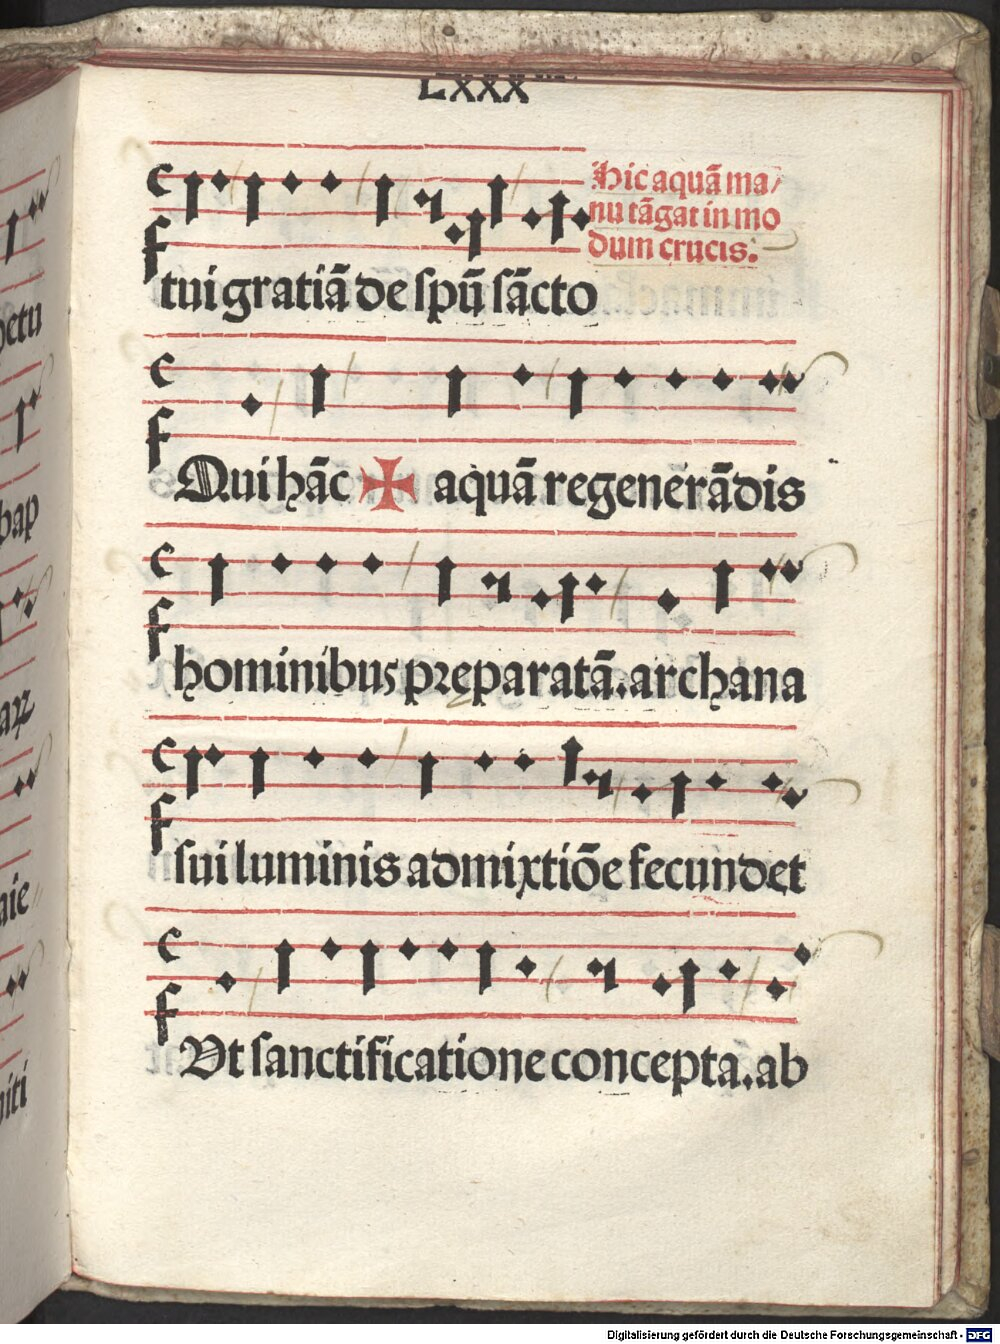 LXXX
Hic aquā ma/
nu tāgat in mo
dum crucis.
tui gratiā de spū sācto
Qui hāc ✠ aquā regenerādis
hominibus preparatā. archana
sui luminis admixtiōe fecundet
Vt sanctificatione concepta. ab
Digitalisierung gefördert durch die Deutsche Forschungsgemeinschaft - DFG